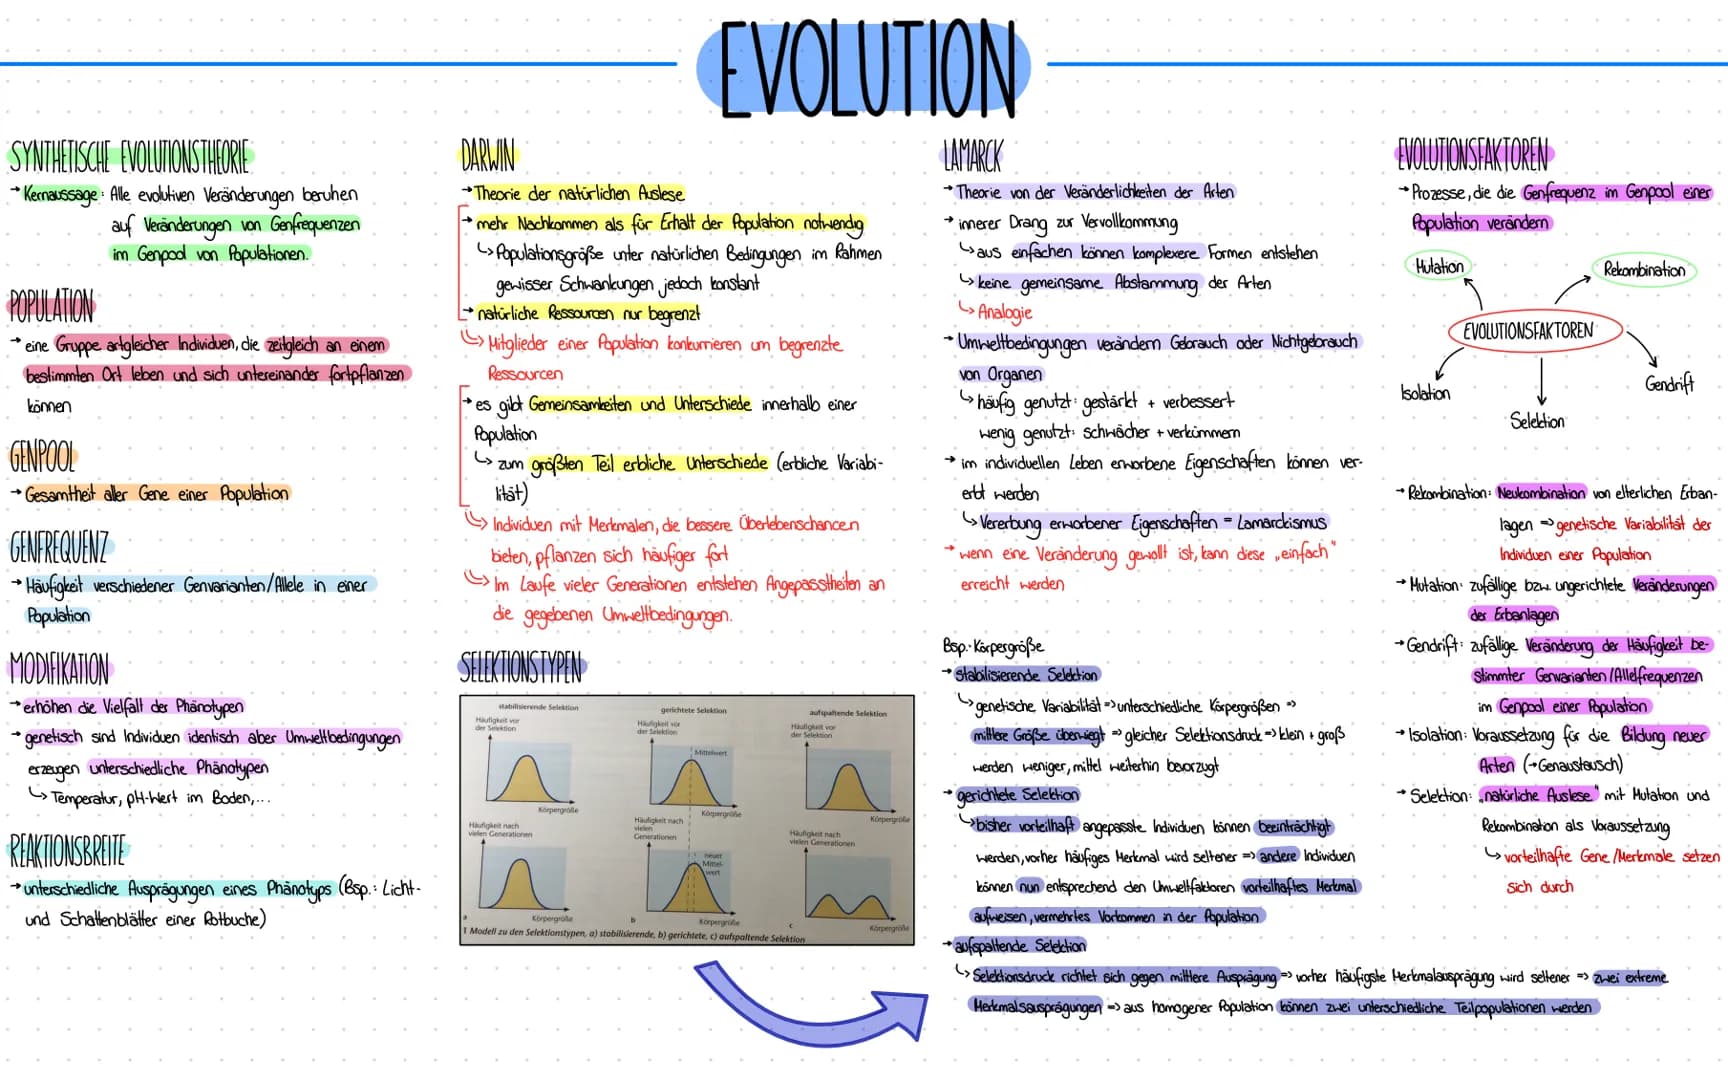 EVOLUTION
SYNTHETISCHE EVOLUTIONSTHEORIE
→ Kernaussage: Alle evolutiven Veränderungen beruhen
auf Veränderungen von Genfrequenzen
im Genpool von Populationen.
POPULATION
→ eine Gruppe artgleicher Individuen, die zeitgleich an einem
bestimmten Ort leben und sich untereinander fortpflanzen
können
GENPOOL
→ Gesamtheit aller Gene einer Population
GENFREQUENZ
→ Häufigkeit verschiedener Genvarianten/Allele in einer
Population
MODIFIKATION
→ erhöhen die Vielfalt der Phänotypen
→ genetisch sind Individuen identisch aber Umweltbedingungen
erzeugen unterschiedliche Phänotypen
↳ Temperatur, pH-Wert im Boden,...
REAKTIONSBREITE
→ unterschiedliche Ausprägungen eines Phänotyps (Bsp.: Licht-
und Schattenblätter einer Rotbuche)
DARWIN
→ Theorie der natürlichen Auslese
→ mehr Nachkommen als für Erhalt der Population notwendig
↳ Populationsgröße unter natürlichen Bedingungen im Rahmen
gewisser Schwankungen jedoch konstant
→ natürliche Ressourcen nur begrenzt
↳ Mitglieder einer Population konkurrieren um begrenzte
Ressourcen
→ es gibt Gemeinsamkeiten und Unterschiede innerhalb einer
Population
↳ zum größten Teil erbliche Unterschiede (erbliche Variabi-
lität)
↳ Individuen mit Merkmalen, die bessere Überlebenschancen
bieten, pflanzen sich häufiger fort
↳ Im Laufe vieler Generationen entstehen Angepasstheiten an
die gegebenen Umweltbedingungen.
SELEKTIONSTYPEN
stabilisierende Selektion
Häufigkeit vor
der Selektion
Körpergröße
Häufigkeit nach
vielen Generationen
Körpergröße
a
gerichtete Selektion
Häufigkeit vor
der Selektion
Mittelwert
Körpergröße
Häufigkeit nach
vielen
Generationen
neuer
Mittel-
wert
Körpergröße
b
aufspaltende Selektion
Häufigkeit vor
der Selektion
Körpergröße
Häufigkeit nach
vielen Generationen
Körpergröße
c
1 Modell zu den Selektionstypen, a) stabilisierende, b) gerichtete, c) aufspaltende Selektion
LAMARCK
→ Theorie von der Veränderlichkeiten der Arten
→ innerer Drang zur Vervollkommung
↳ aus einfachen können komplexere Formen entstehen
↳ keine gemeinsame Abstammung der Arten
↳ Analogie
→ Umweltbedingungen verändern Gebrauch oder Nichtgebrauch
von Organen
↳ häufig genutzt: gestärkt + verbessert
wenig genutzt: schwächer + verkümmern
→ im individuellen Leben erworbene Eigenschaften können ver-
erbt werden
↳ Vererbung erworbener Eigenschaften = Lamarckismus
→ wenn eine Veränderung gewollt ist, kann diese „einfach"
erreicht werden
Bsp.: Körpergröße
→ stabilisierende Selektion
↳ genetische Variabilität => unterschiedliche Körpergrößen =>
mittlere Größe überwiegt => gleicher Selektionsdruck => klein + groß
werden weniger, mittel weiterhin bevorzugt
→ gerichtete Selektion
↳ bisher vorteilhaft angepasste Individuen können beeinträchtigt
werden, vorher häufiges Merkmal wird seltener => andere Individuen
können nun entsprechend den Umweltfaktoren vorteilhaftes Merkmal
aufweisen, vermehrtes Vorkommen in der Population
→ aufspaltende Selektion
↳ Selektionsdruck richtet sich gegen mittlere Ausprägung => vorher häufigste Merkmalausprägung wird seltener => zwei extreme
Merkmalsausprägungen => aus homogener Population können zwei unterschiedliche Teilpopulationen werden
EVOLUTIONSFAKTOREN
→ Prozesse, die die Genfrequenz im Genpool einer
Population verändern
Mutation
Rekombination
EVOLUTIONSFAKTOREN
Isolation
Selektion
Gendrift
→ Rekombination: Neukombination von elterlichen Erban-
lagen => genetische Variabilität der
Individuen einer Population
→ Mutation: zufällige bzw. ungerichtete Veränderungen
der Erbanlagen
→ Gendrift: zufällige Veränderung der Häufigkeit be-
stimmter Genvarianten/Allelfrequenzen
im Genpool einer Population
→ Isolation: Voraussetzung für die Bildung neuer
Arten (→Genaustausch)
→ Selektion: „natürliche Auslese" mit Mutation und
Rekombination als Voraussetzung
↳ vorteilhafte Gene/Merkmale setzen
sich durch